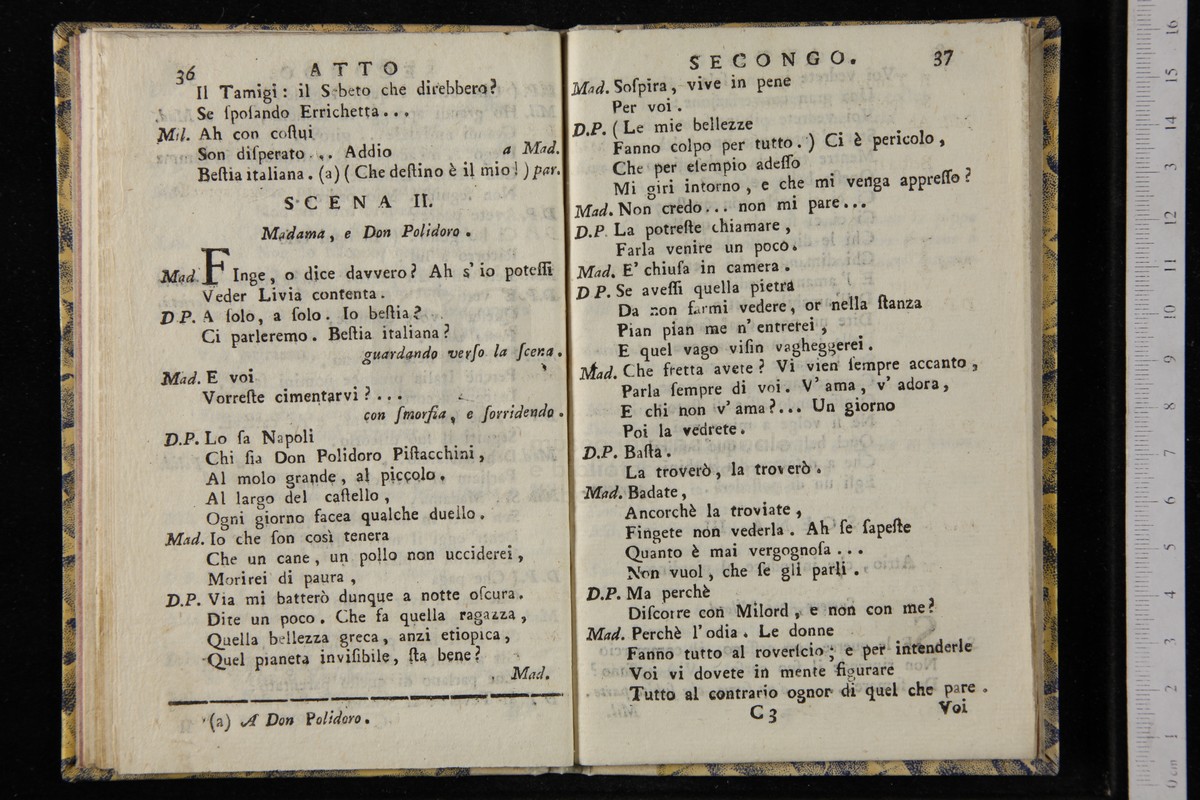 36
ATTO
Il Tamigi: il Sebeto che direbbero?
Se ſpoſando Errichetta...
Mil. Ah con coſtui
Son diſperato... Addio a Mad.
Beſtia italiana. (a) (Che deſtino è il mio!) par.
SCENA II.
Madama, e Don Polidoro.
Mad. FInge, o dice davvero? Ah s'io poteſſi
Veder Livia contenta.
D P. A ſolo, a ſolo. Io beſtia?
Ci parleremo. Beſtia italiana?
guardando verſo la ſcena.
Mad. E voi
Vorreſte cimentarvi?...
con ſmorfia, e ſorridendo.
D.P. Lo ſa Napoli
Chi ſia Don Polidoro Piſtacchini,
Al molo grande, al piccolo,
Al largo del caſtello,
Ogni giorno facea qualche duello.
Mad. Io che ſon così tenera
Che un cane, un pollo non ucciderei,
Morirei di paura,
D.P. Via mi batterò dunque a notte oſcura.
Dite un poco. Che fa quella ragazza,
Quella bellezza greca, anzi etiopica,
Quel pianeta inviſibile, ſta bene?
Mad.
(a) A Don Polidoro.
SECONGO.
37
Mad. Soſpira, vive in pene
Per voi.
D.P. (Le mie bellezze
Fanno colpo per tutto.) Ci è pericolo,
Che per eſempio adeſſo
Mi giri intorno, e che mi venga appreſſo?
Mad. Non credo... non mi pare...
D.P. La potreſte chiamare,
Farla venire un poco.
Mad. E' chiuſa in camera.
D P. Se aveſſi quella pietra
Da non farmi vedere, or nella ſtanza
Pian pian me n'entrerei,
E quel vago viſin vagheggerei.
Mad. Che fretta avete? Vi vien ſempre accanto,
Parla ſempre di voi. V'ama, v'adora,
E chi non v'ama?... Un giorno
Poi la vedrete.
D.P. Baſta.
La troverò, la troverò.
Mad. Badate,
Ancorchè la troviate,
Fingete non vederla. Ah ſe ſapeſte
Quanto è mai vergognoſa...
Non vuol, che ſe gli parli.
D.P. Ma perchè
Diſcorre con Milord, e non con me?
Mad. Perchè l'odia. Le donne
Fanno tutto al roverſcio; e per intenderle
Voi vi dovete in mente figurare
Tutto al contrario ognor di quel che pare.
C 3
Voi